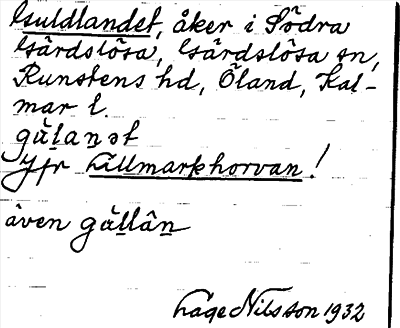 Guldlandet, åker i Södra
Gärdslösa, Gärdslösa sn,
Runstens hd, Öland, Kal-
mar l.
gu̇̀ḻaṉət
Jfr Lillmarkhorvan!
även gu̇̀ḻḻâṉ
Låge Nilsson 1932